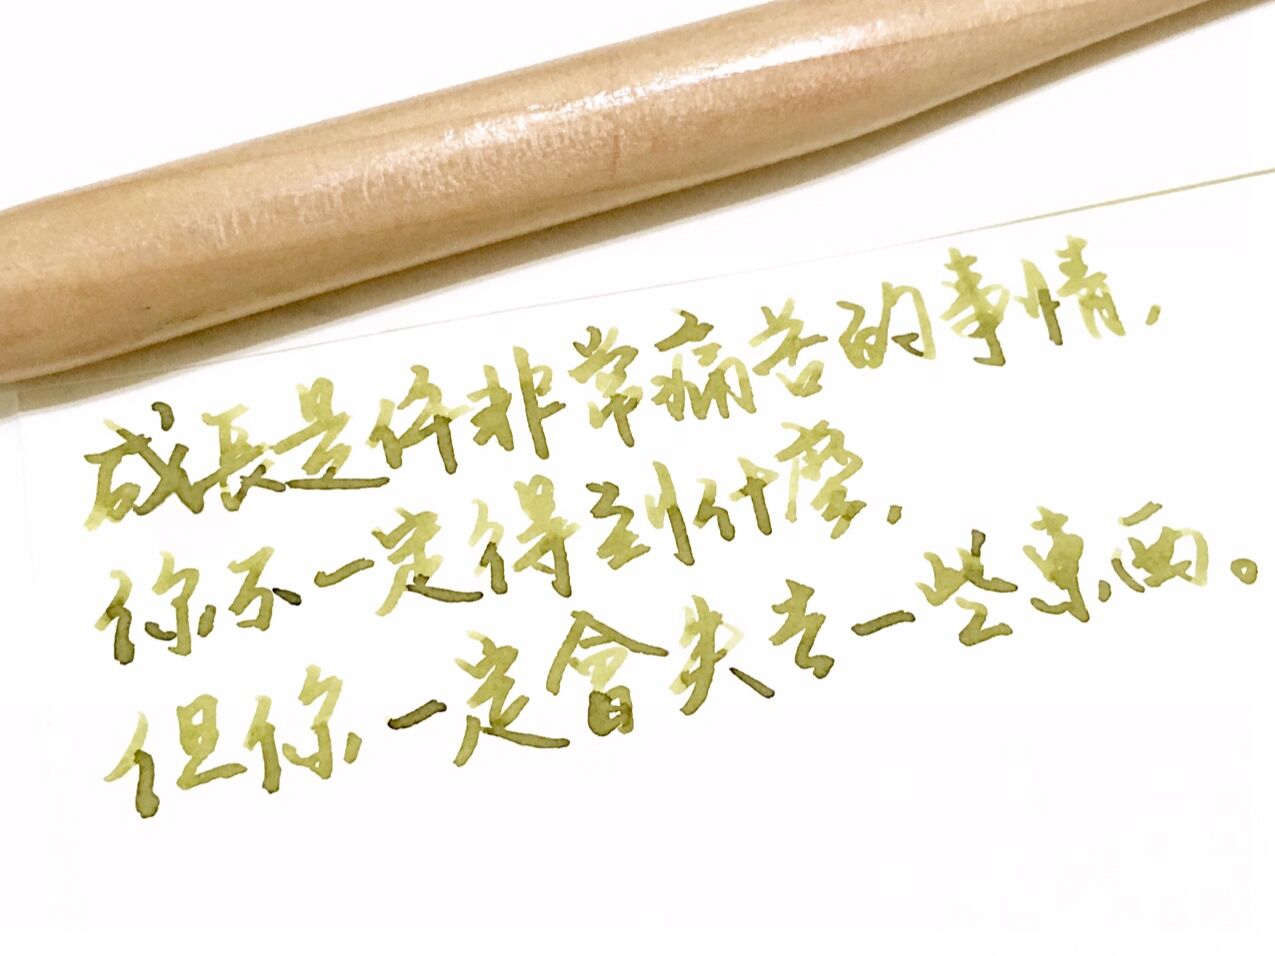 成長是件非常痛苦的事情，
你不一定得到什麼，
但你一定會失去一些東西。